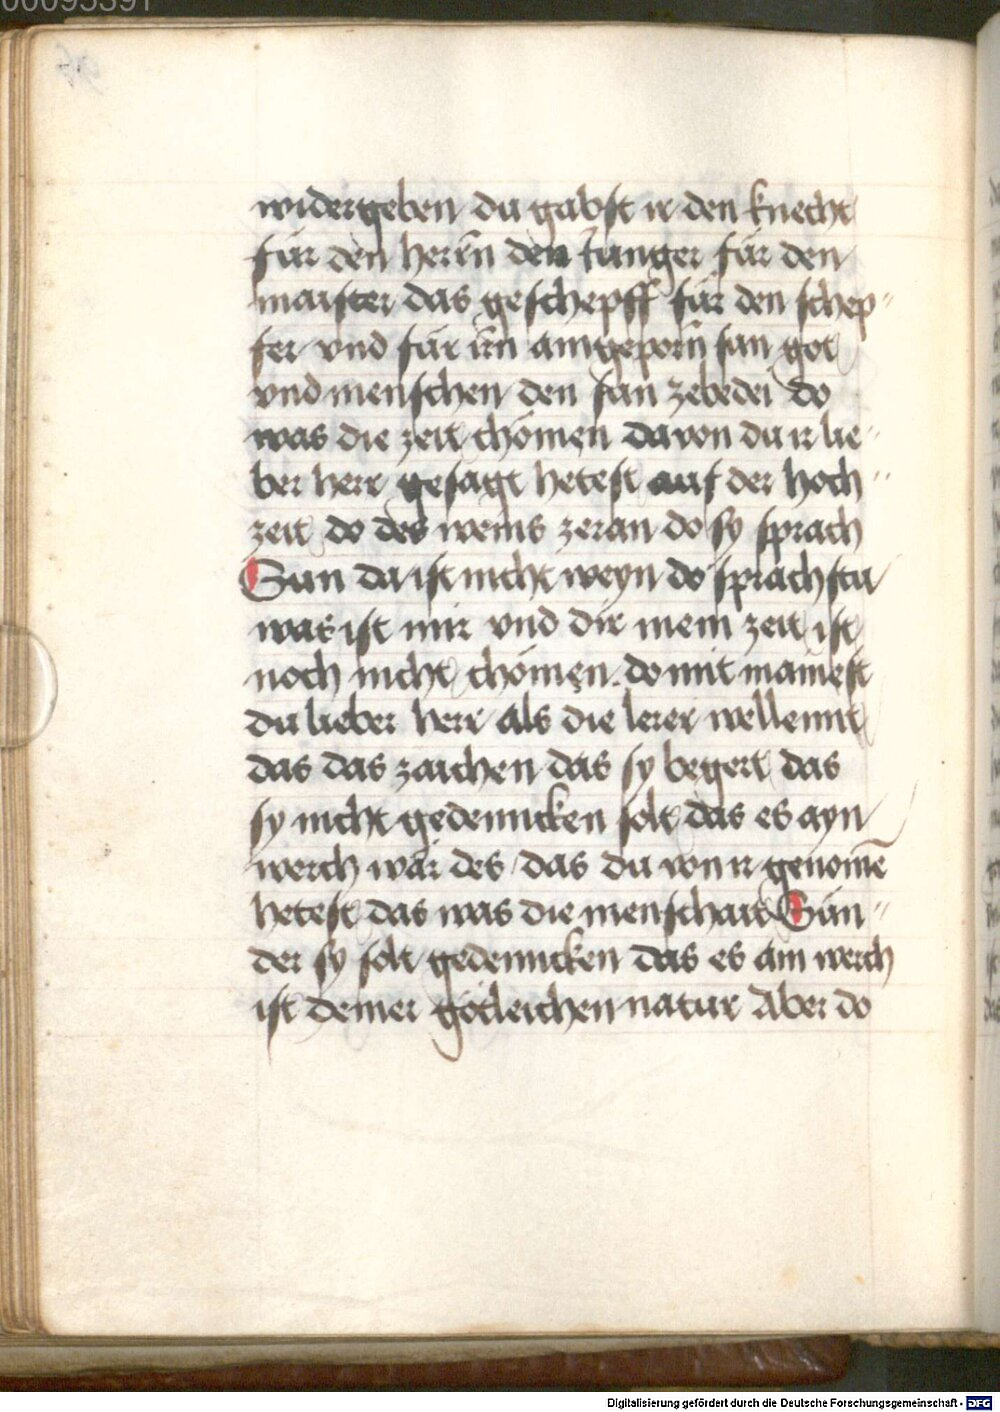 00095391
widergeben du gabst ir den knecht
für den herrn den iunger für den
maister das geschepff für den schep"
fer vnd für irn aingeporn sun got
vnd menschen den sun zebedei do
was die zeit chömen dauon du ir lie"
ber herr gesagt hetest auf der hoch"
zeit do des weins zeran do sy sprach
Sun da ist nicht weyn do sprachstu
was ist mir vnd dir mein zeit ist
noch nicht chömen. do mit mainest
du lieber herr als die lerer wellennt
das das zaichen das sy begert das
sy nicht gedenncken solt das es ayn
werch wär des das du von ir genomē
hetest das was die menschait Sun"
der sy solt gedenncken das es ain werch
ist deiner götleichen natur Aber do
Digitalisierung gefördert durch die Deutsche Forschungsgemeinschaft - DFG